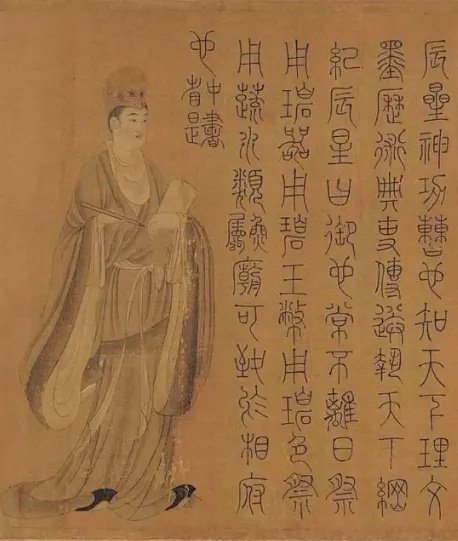 辰星神功曹也知天下理文
墨歷術典吏傳送執天下綱
紀辰星日御也常不離日祭
用碧器用碧玉幣用碧色祭
用蔬水類廟可致於相府
也中書者是